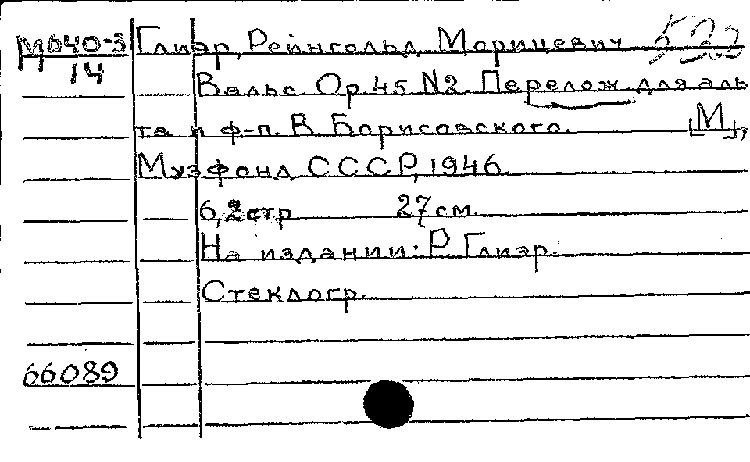 М640-3 Глиэр, Рейнгольд Морицевич 522
14
Вальс. Ор. 45 N2. Перелож. для аль
та и ф-п. В. Борисовского. [М.],
Музфонд СССР, 1946.
6, 2 стр. 27 см.
На издании: Р. Глиэр.
Стеклогр.
66089